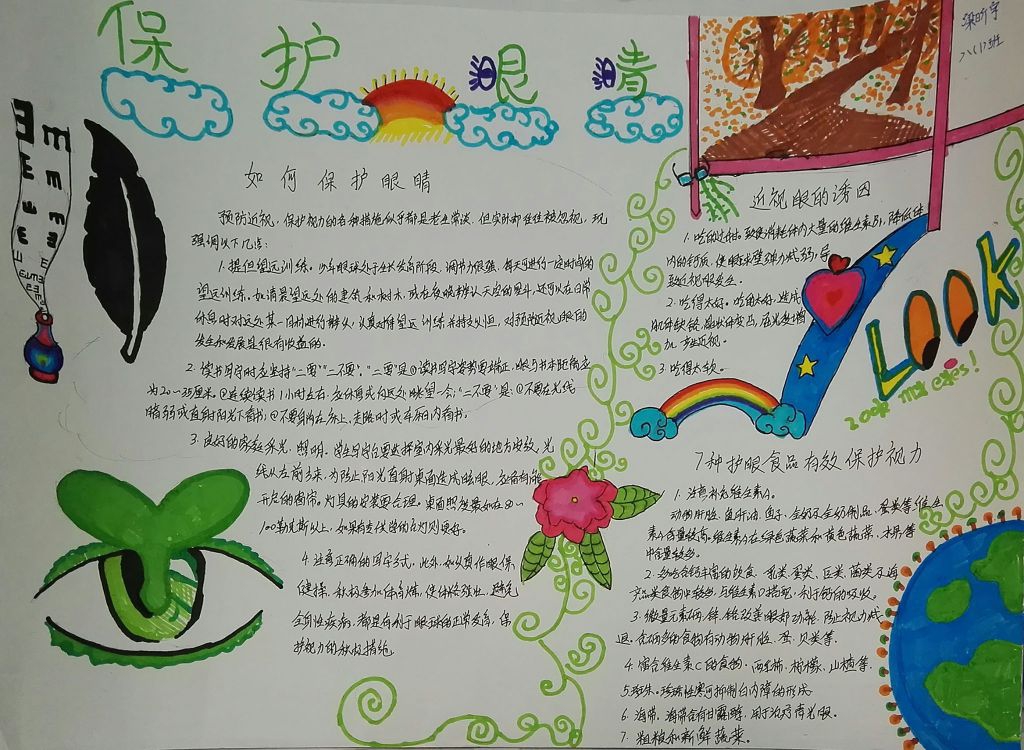 保护眼睛
梁昕宇
八(1)班
如何保护眼睛
预防近视,保护视力的各种措施似乎都是老生常谈,但实际却往往被忽视,现
强调以下几点:
1.提倡望远训练。少年眼球处于生长发育阶段,调节力很强,每天可进行一定时间的
望远训练。如清晨望远处的建筑和树木,或在夜晚辨认天空的星斗,还可以在日常
休息时对远处某一目标进行辨认,认真对待望远训练并持之以恒,对预防近视眼的
发生和发展是很有收益的。
2.读书写字时应坚持“二要”“二不要”。“二要”是①读书写字姿势要端正,眼与书本距离应
为20~35厘米。②连续读书1小时左右,应休息或向远处眺望一会;“二不要”是:①不要在光线
暗弱或直射阳光下看书;②不要躺在床上,走路时或车厢内看书。
3.良好的家教采光,照明。学生写字台要选择室内采光最好的地方安放,光
线从左前方来,为防止阳光直射桌面造成眩眼,应备有能
开启的窗帘。灯具的安装要合理。桌面照度最好在50~
100勒克斯以上,如果有专供学的台灯则更好。
4.注意正确的用字方式,此外,如认真作眼保
健操,积极参加体育锻炼,使体格强壮,避免
全身性疾病,都是有利于眼球的正常发育,保
护视力的积极措施
近视眼的诱因
1.吃的过甜。致使消耗体内大量的维生素B1,降低体
内的钙质,使眼球壁弹力减弱,导
致近视眼发生。
2.吃得太好。吃的太好,造成
肌体缺铬,晶状体变凸,屈光度增
加,产生近视。
3.吃得太软。
LOOK
Look my eyes!
7种护眼食品有效保护视力
1.注意补充维生素A。
动物肝脏、鱼肝油、鱼子、全奶及全奶制品、蛋类等维生
素A含量较高。维生素A在绿色蔬菜和黄色蔬菜,水果等
中含量较多。
2.多吃含钙丰富的饮食,乳类、蛋类、豆类、菌类及海
产品类食物中较多,与维生素D搭配,利于钙的吸收。
3.微量元素硒、锌、铬改善眼部功能,防止视力减
退。含硒多的食物有动物肝脏、蛋、贝类等。
4.富含维生素C的食物,西红柿,柠檬,山楂等。
5.珍珠。珍珠性寒可抑制白内障的形成
6.海带。海带含有甘露醇,用于治疗青光眼。
7.粗粮和新鲜蔬菜。